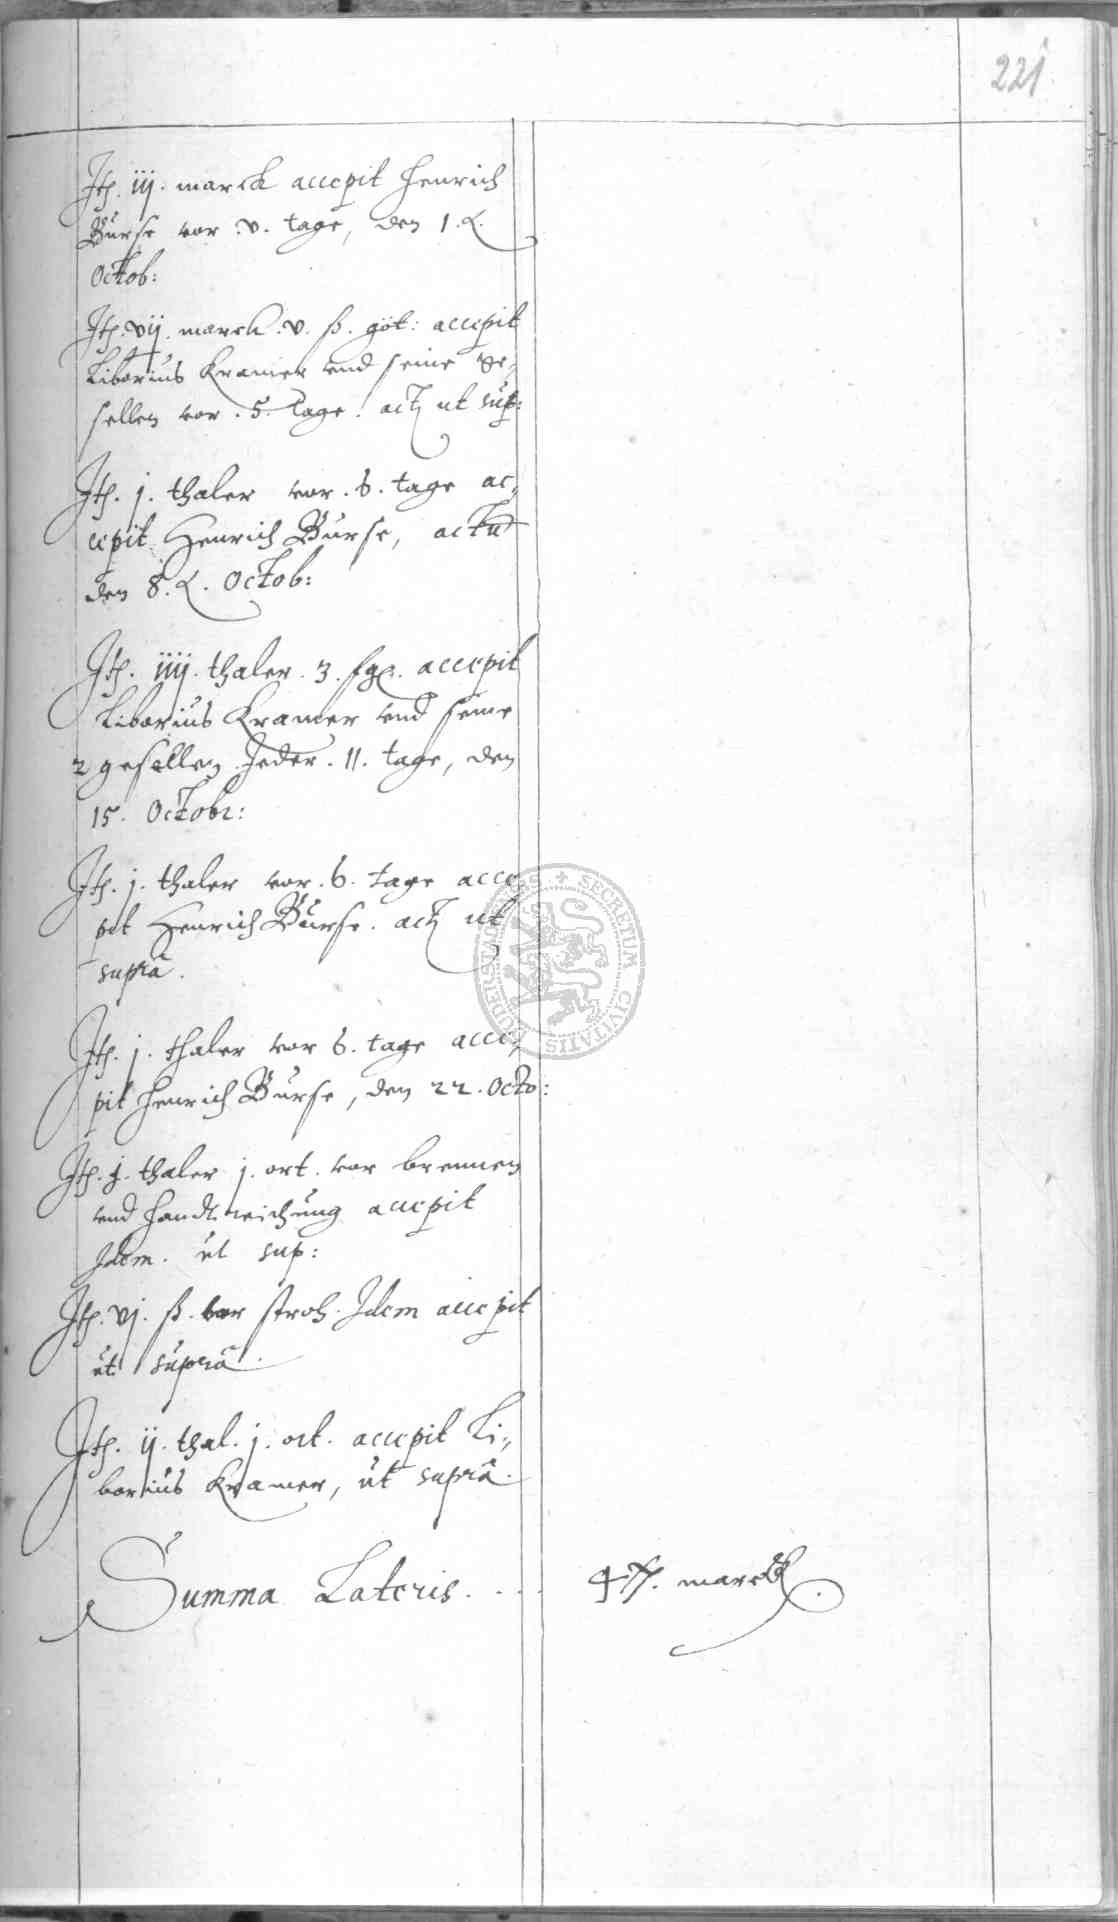 221
Itē. iij. marck accepit Henrich
Burse vor .v. tage, den 1.
Octob:
Itē. vij. marck .v. ß. göt: accepit
Liborius Kramer vnd seine ge-
sellen vor .5. tage. actū ut sup:
Itē. j. thaler vor .6. tage ac-
cepit Henrich Burse, actū
den 8. Octob:
Itē. iiij. thaler .3. accepit
Liborius Kramer vnd seine
2 gesellen Jeder .11. tage, den
15. Octobr:
Itē. j. thaler vor .6. tage acce-
pit Henrich Burse. actū ut
supra.
Itē. j. thaler vor 6. tage acce-
pit Henrich Burse, den 22. Octo:
Itē. j. thaler j. ort. vor brennen
vnd handtreichung accepit
Idem. ut sup:
Itē. vj. ß. vor stroh. Idem accepit
ut supra.
Itē. ij. thal. j. ort. accepit Li-
borius Kramer, ut supra.
Summa Lateris. . . . marck.
SECRETUM CIVITATIS DUDERSTADENSIS